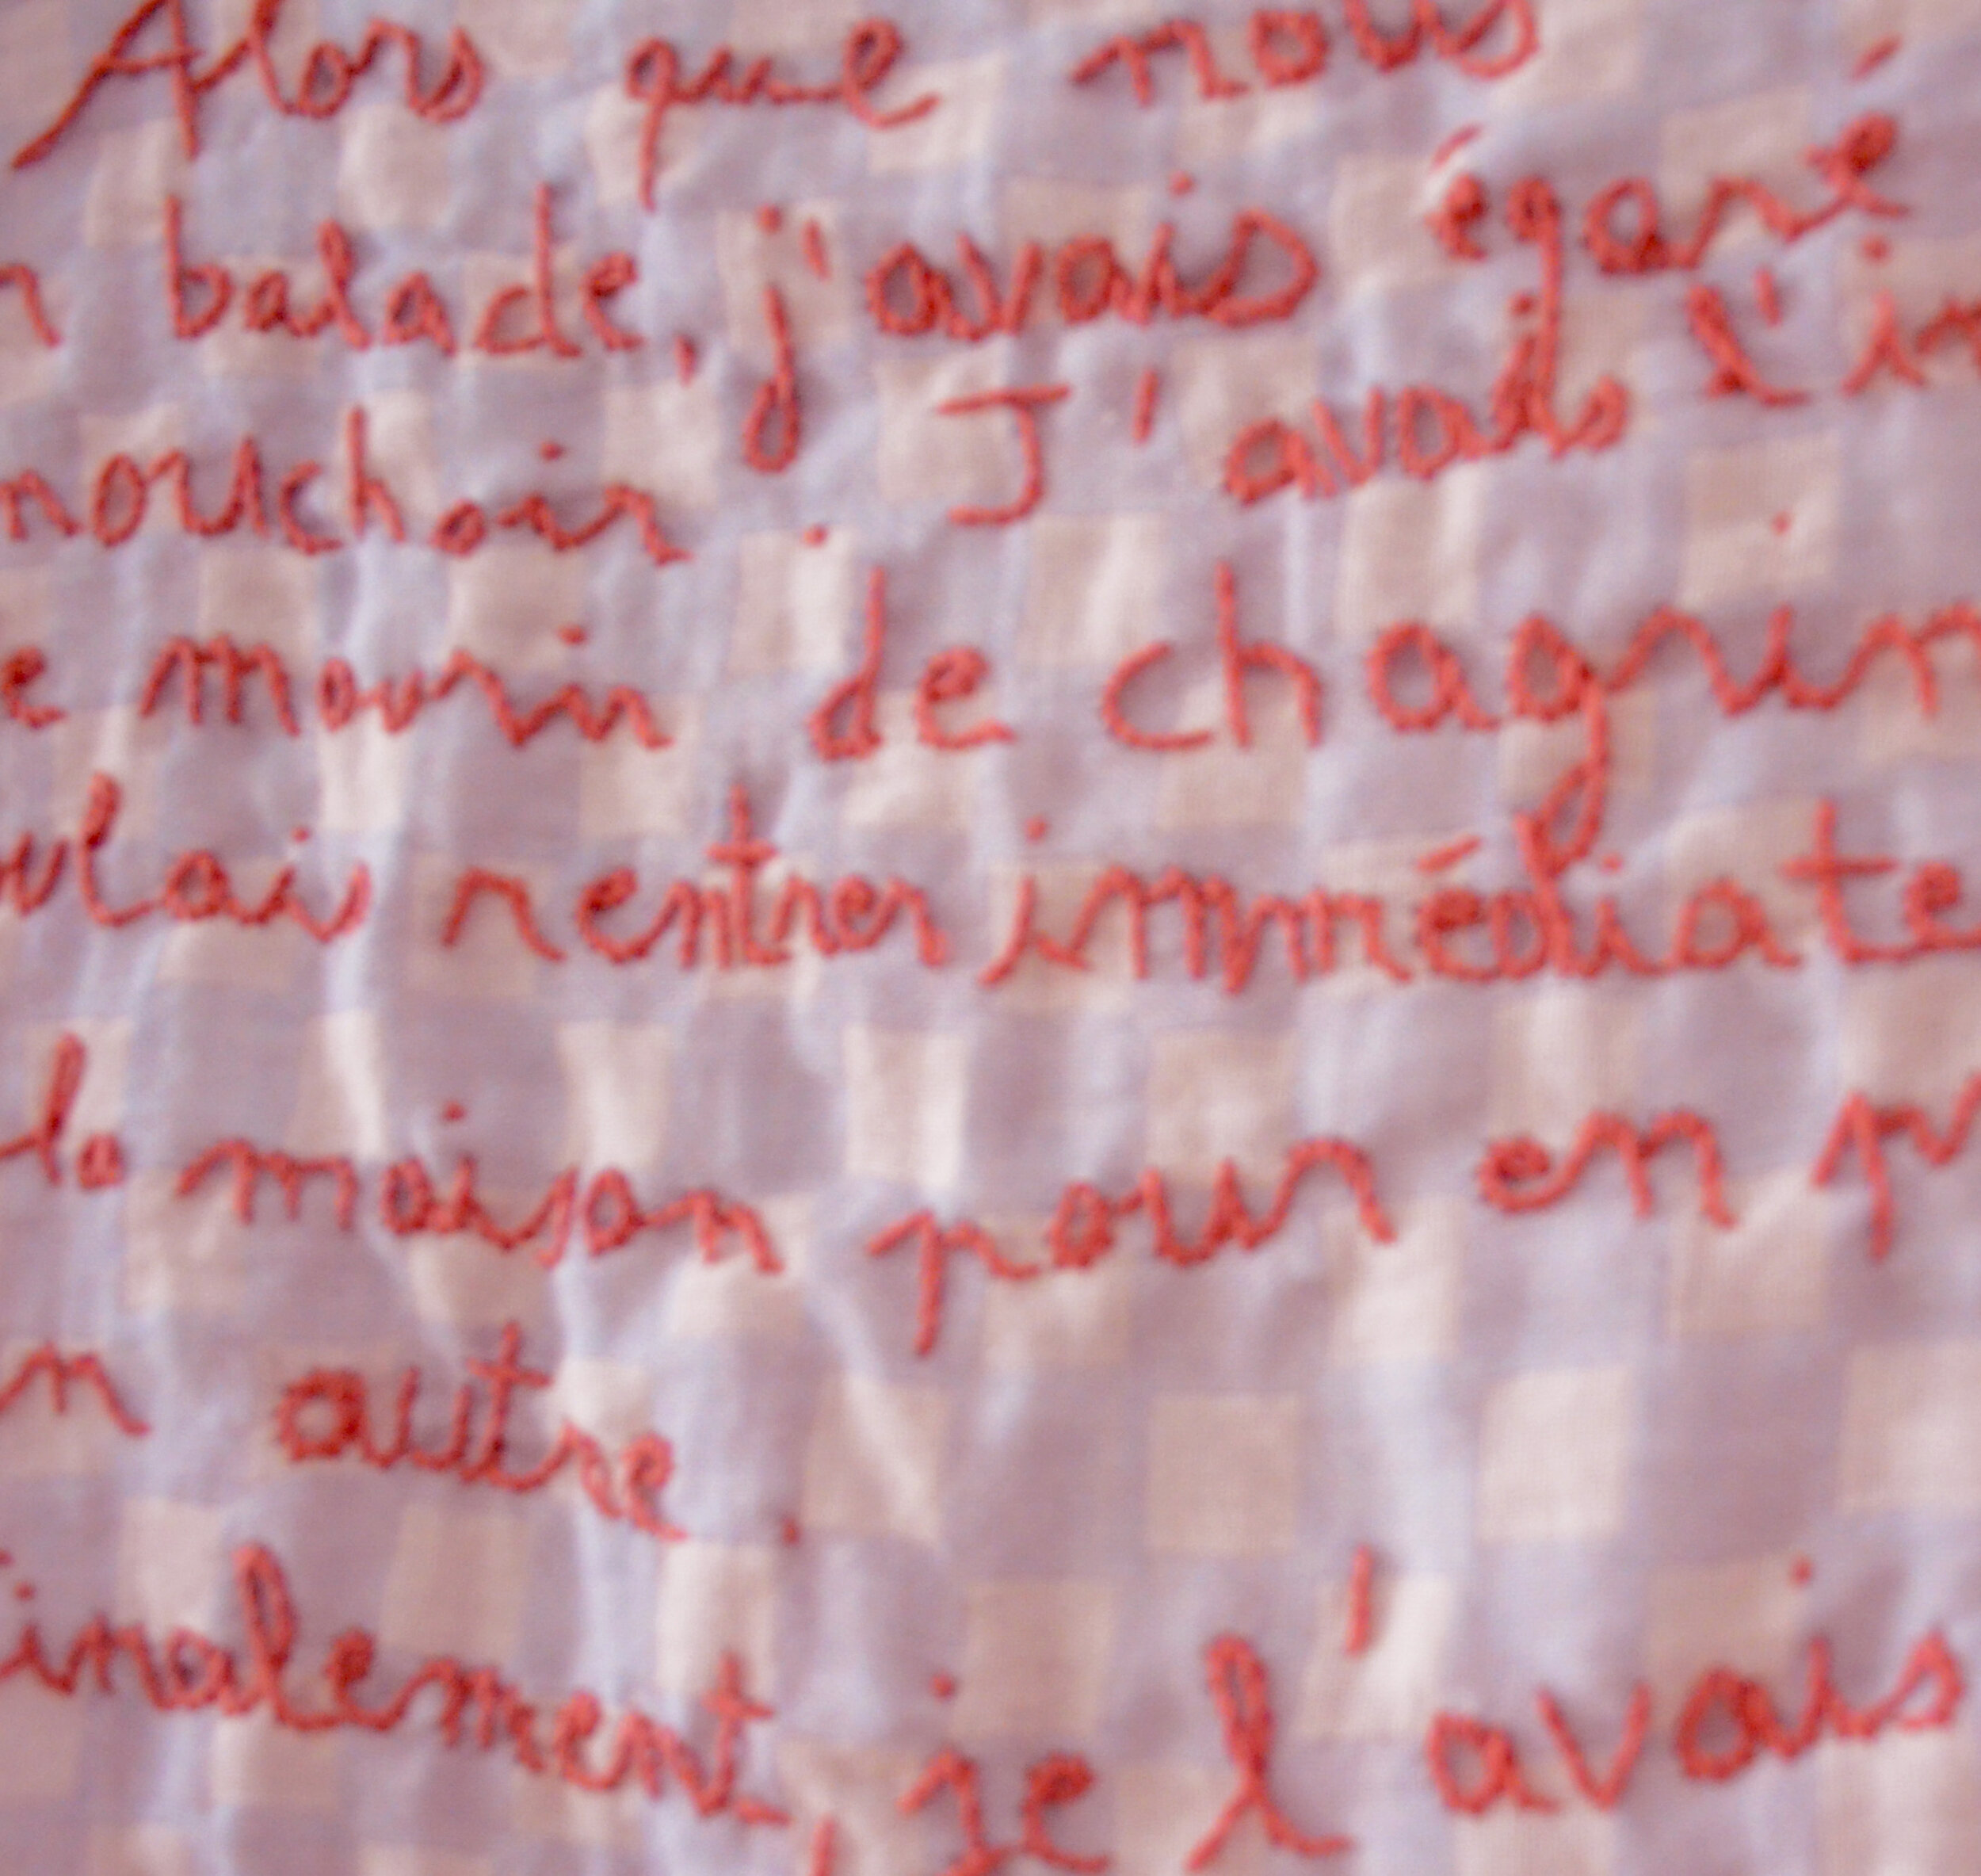 Alors que nous
n balade, j'avais égaré
mouchoir. J'avais l'in
e mourir de chagrin
ulais rentrer immédiate
la maison pour en pr
n autre.
inalement, je l'avais